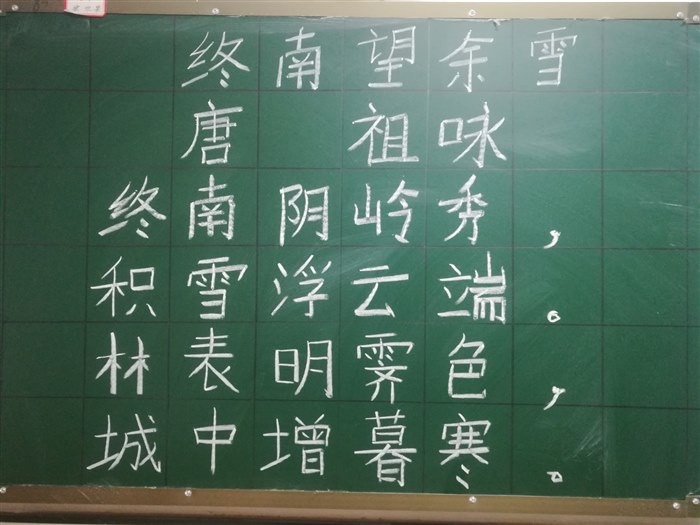 终南望余雪
唐 祖咏
终南阴岭秀，
积雪浮云端。
林表明霁色，
城中增暮寒。